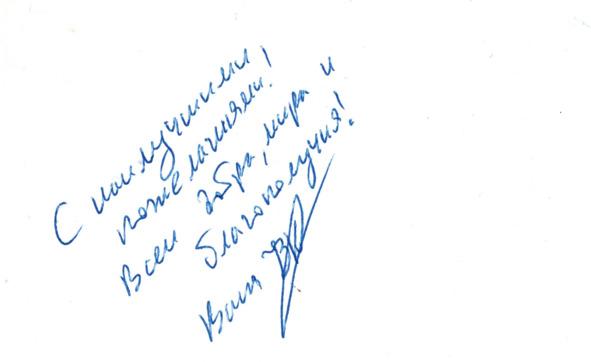 С наилучшими
пожеланиями!
Всем добра, мира и
благополучия!
Ваш